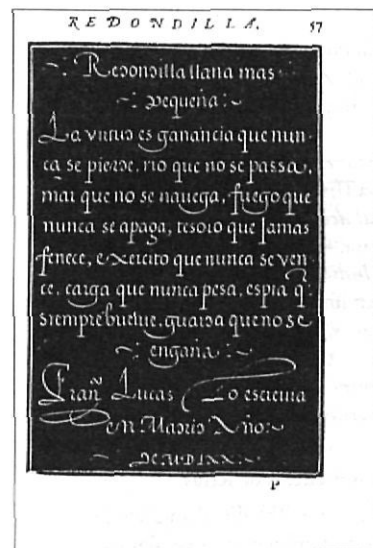 REDONDILLA. 57
Redondilla llana mas
pequeña
La virtud es ganancia que nun-
ca se pierde, rio que no se passa,
mar que no se nauega, fuego que
nunca se apaga, tesoro que jamas
fenece, exercito que nunca se ven
ce, carga que nunca pesa, espia q̃
siempre buelue, guarda que no se
engaña
Fran.º Lucas Lo escreuia
en Madrid Año
P